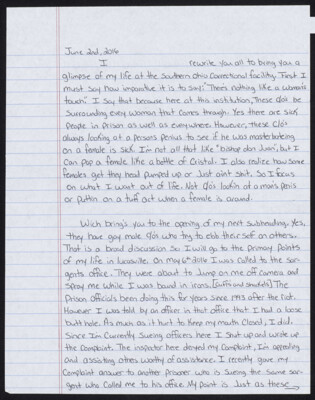 June 2nd, 2016
I rewrite you all to bring you a
glimpse of my life at the Southern Ohio Correctional facility. First I
must say how imparative it is to say: "There's nothing like a woman's
touch." I say that because here at this institution, These C/o's be
Surrounding every woman that comes through. Yes there are sick
people in prison as well as everywhere. However, these C/o's
always looking at a persons penius to see if he was masterbateing
on a female is sick. I'm not all that like "bishop don Juan", but I
Can pop a female like a bottle of Cristal. I also realize how some
females get they head pumped up or Just aint shit. So I focus
on what I want out of life. Not C/o's lookin at a man's penis
or puttin on a tuff act when a female is around.
Wich bring's you to the opening of my next subheading. Yes,
they have gay male C/o's who try to club their self on others.
That is a broad discussion. So I will go to the primary Points
of my life in lucasville. On may 6th 2016 I was called to the sar-
gents office. They were about to Jump on me off camera and
spray me while I was bound in irons. [cuffs and shackels] The
Prison officials been doing this for years since 1993 after the riot.
However I was told by an officer in that office that I had a loose
butt hole. As much as it hurt to keep my mouth closed, I did.
Since I'm currently sueing officers here I shut up and wrote up
the Complaint. The inspector here denyed my Complaint, I'm appealing
and assisting others worthy of assistance. I recently gave my
Complaint answer to another prisoner who is sueing the same sar-
gent who called me to his office. My point is Just as these